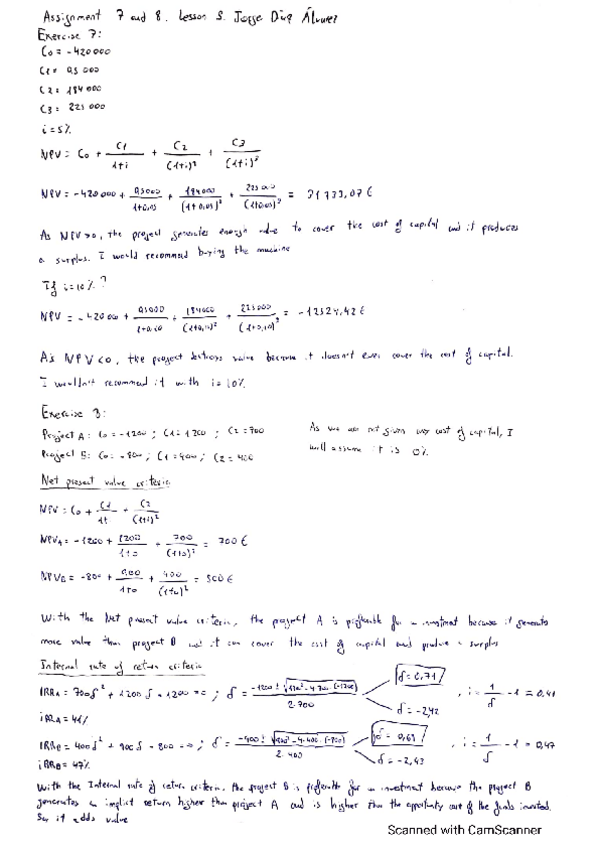 Assignment 7 and 8. Lesson 5. Jorge Díaz Álvarez
Exercise 7:
C0 = -420000
C1 = 95 000
C2 = 184 000
C3 = 225 000
i = 5%
NPV = C0 + C1/(1+i) + C2/(1+i)² + C3/(1+i)³
NPV = -420000 + 95000/(1+0,05) + 184000/(1+0,05)² + 225000/(1+0,05)³ = 31733,07 €
As NPV>0, the project generates enough value to cover the cost of capital and it produces
a surplus. I would recommend buying the machine
If i=10%?
NPV = -420000 + 95000/(1+0,10) + 184000/(1+0,10)² + 225000/(1+0,10)³ = -12524,42 €
As NPV<0, the project destroys value because it doesn't even cover the cost of capital.
I wouldn't recommend it with i=10%
Exercise 8:
Project A: C0 = -1200 ; C1 = 1200 ; C2 = 700
Project B: C0 = -800 ; C1 = 900 ; C2 = 400
As we are not given any cost of capital, I
will assume it is 0%.
Net present value criteria
NPV = C0 + C1/1+ + C2/(1+i)²
NPVA = -1200 + 1200/(1+0) + 700/(1+0)² = 700 €
NPVB = -800 + 900/(1+0) + 400/(1+0)² = 500 €
With the Net present value criteria, the project A is preferable for a investment because it generates
more value than project B and it can cover the cost of capital and produce a surplus
Internal rate of return criteria
IRRA = 700δ² + 1200δ - 1200 = 0 ; δ = 2·700 δ = 0,71 δ = -2,42 , i = 1/δ - 1 = 0,41
iRRA = 41%
IRRB = 400δ² + 900δ - 800 = 0 ; δ = 2·400 δ = 0,68 δ = -2,93 , i = 1/δ - 1 = 0,47
iRRB = 47%
With the Internal rate of return criteria, the project B is preferable for an investment because the project B
generates an implicit return higher than project A and is higher than the opportunity cost of the funds invested.
So it adds value
Scanned with CamScanner